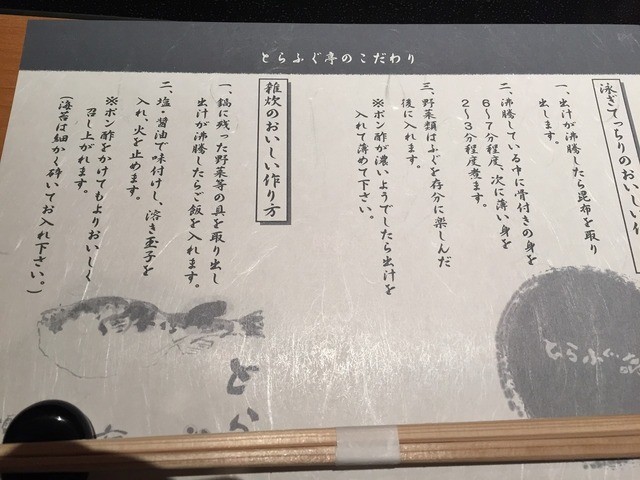 とらふぐ亭のこだわり
泳ぎてっちりのおいしい作
一、出汁が沸騰したら昆布を取り
出します。
二、沸騰している中に骨付きの身を
6~7分程度、次に薄い身を
2~3分程度煮ます。
三、野菜類はふぐを存分に楽しんだ
後に入れます。
※ポン酢が濃いようでしたら出汁を
入れて薄めて下さい。
雑炊のおいしい作り方
一、鍋に残った野菜等の具を取り出し
出汁が沸騰したらご飯を入れます。
二、塩・醤油で味付けし、溶き玉子を
入れ、火を止めます。
※ポン酢をかけてもよりおいしく
召し上がれます。
(海苔は細かく砕いてお入れ下さい。)
とらふぐ亭
とら